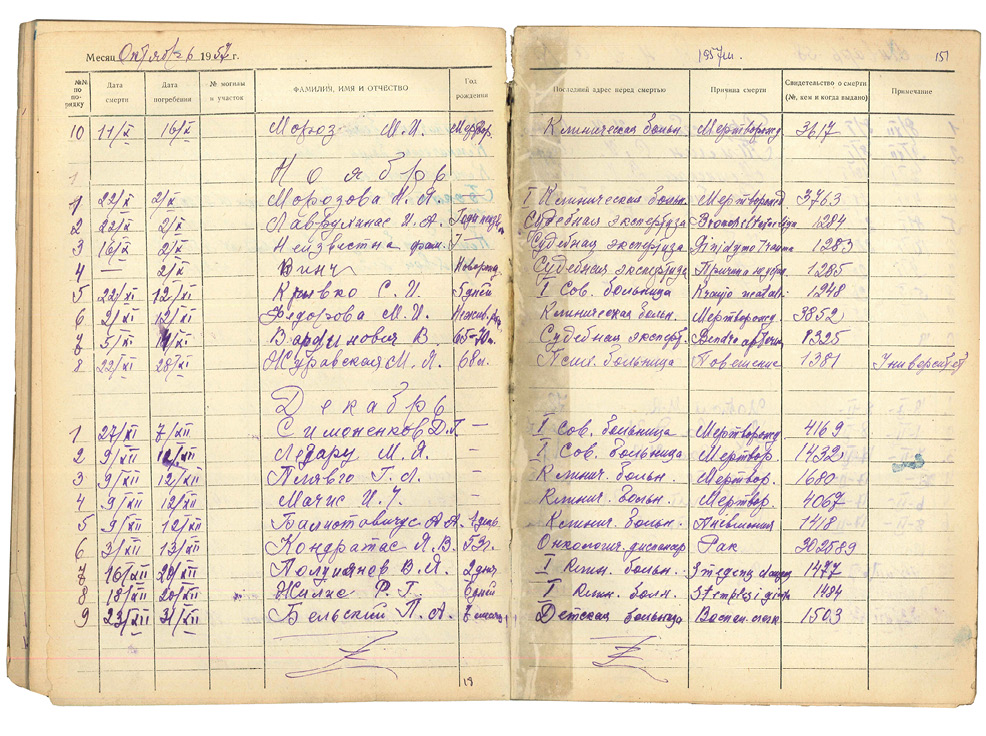 Месяц Октябрь 1957 г. 1957 г. 151
№№ по порядку Дата смерти Дата погребения № могилы и участок ФАМИЛИЯ, ИМЯ И ОТЧЕСТВО Год рождения Последний адрес перед смертью Причина смерти Свидетельство о смерти (№, кем и когда выдано) Примечание
10 11/X 16/X Мороз М.И. Мертвор. Клиническая больн. Мертворожд 3617
Ноябрь
1 22/X 2/X Морозова М.Я. I Клиническая больн. Мертворожд. 3763
2 22/X 2/X И.А. Судебная экспертиза 1284
3 16/X 2/X Неизвестна фам. Судебная экспертиза 1283
4 — 2/X Винч Новорожд. Судебная экспертиза Причина 1285
5 22/XI 12/XI Крывко С.И. 5 дней I Сов. больница 1248
6 2/XI 12/XI Федорова М.И. Клиническая больн. Мертворожд. 3852
7 5/XI В. 65-70л. Судебная эксперт. 8325
8 22/XI 28/XI Журавская М.Я. 68л. Псих. больница Повешение 1381 Университет
Декабрь
1 27/XI 7/XII Симоненков Д.Г. — I Сов. больница Мертворожд 4169
2 9/XII 12/XII Ледару М.Я. — I Сов. больница Мертвор. 1432
3 9/XII 12/XII Плявго Г.А. — Клинич. больн. Мертвор. 1680
4 9/XII 12/XII Мачис И.У. — Клинич. больн. Мертвор. 4067
5 9/XII 12/XII А.А. 1 день. Клинич. больн. Пневмония 1418
6 3/XII 13/XII Кондратас Я.В. 53г. Онкологич. диспансер Рак 302589
7 16/XII 20/XII В.Я. 2 дня. I Клин. больн. 1477
8 18/XII 20/XII Жилис Р.Г. I Клин. болн. 1484
9 23/XII 31/XII Бельский П.А. Детская больница Воспал. 1503
19